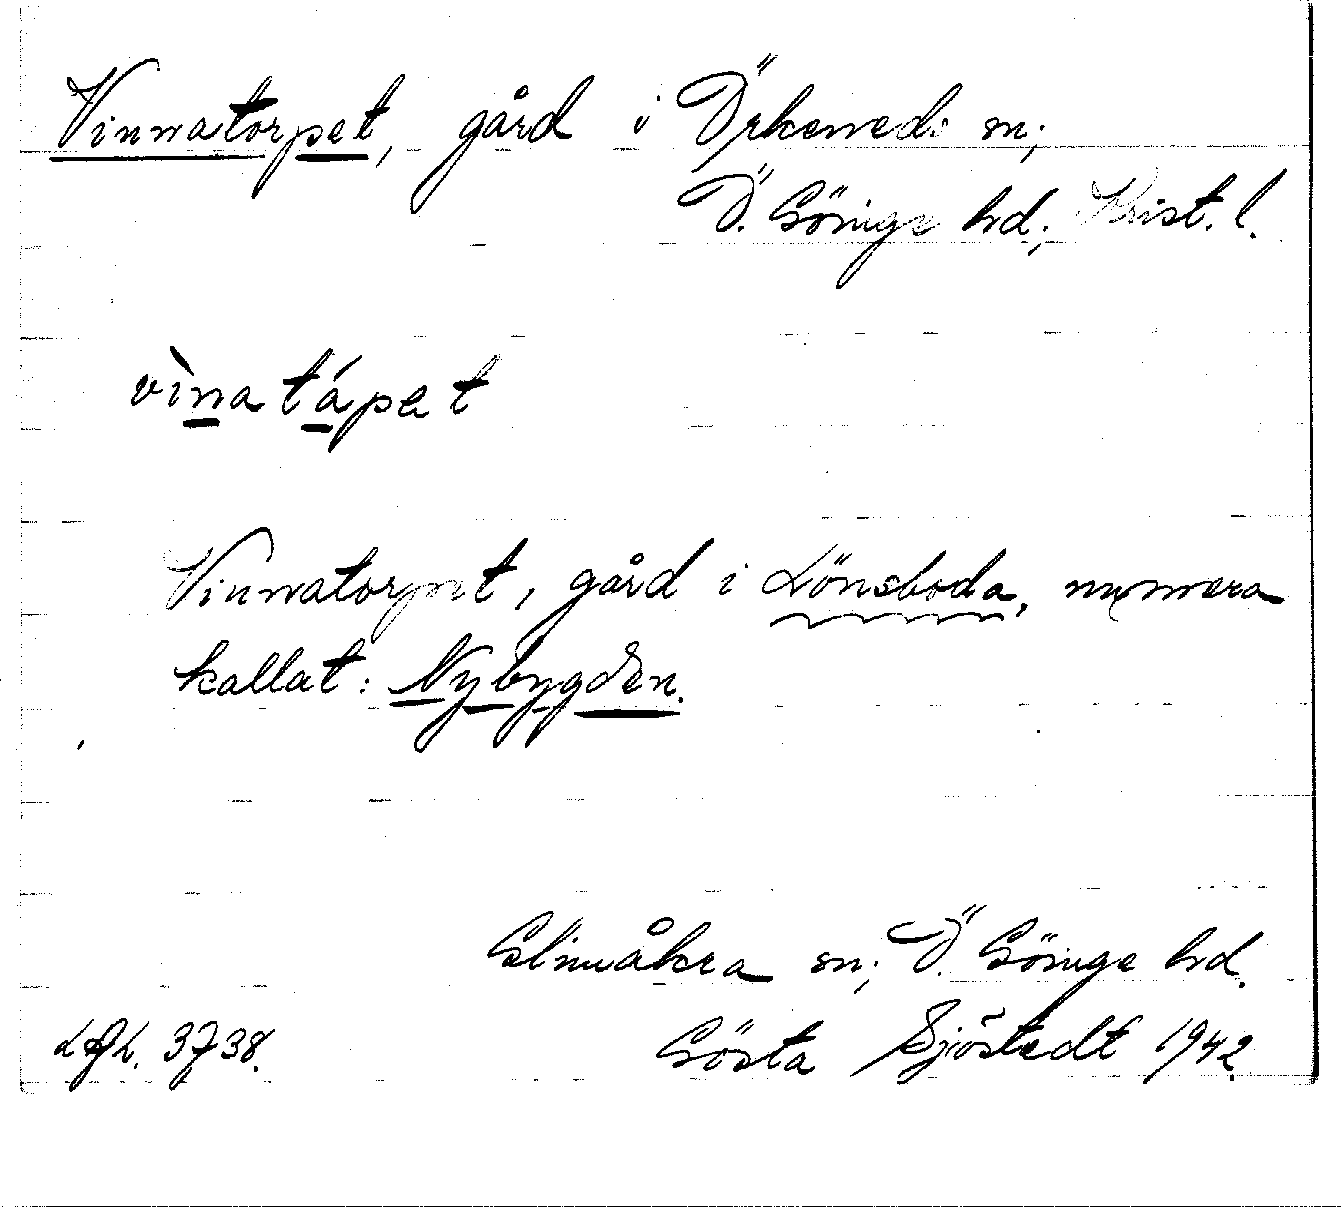 Vinnatorpet, gård i Örkeneds sn;
Ö. Göinge hd; Krist. l.
vìnatápet
Vinnatorpet, gård i Lönsboda, numera
kallat: Nybygden.
Glimåkra sn; Ö. Göinge hd.
Gösta Sjöstedt 1942.
3738.